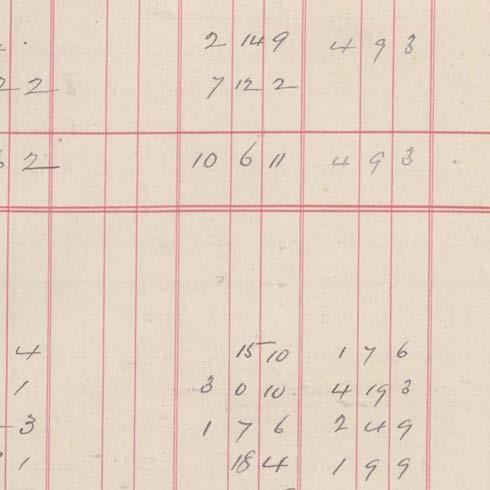 2 14 9 4 9 3
2 7 12 2
2 10 6 11 4 9 3
4 15 10 1 7 6
1 3 0 10 4 19 3
3 1 7 6 2 4 9
1 18 4 1 9 9